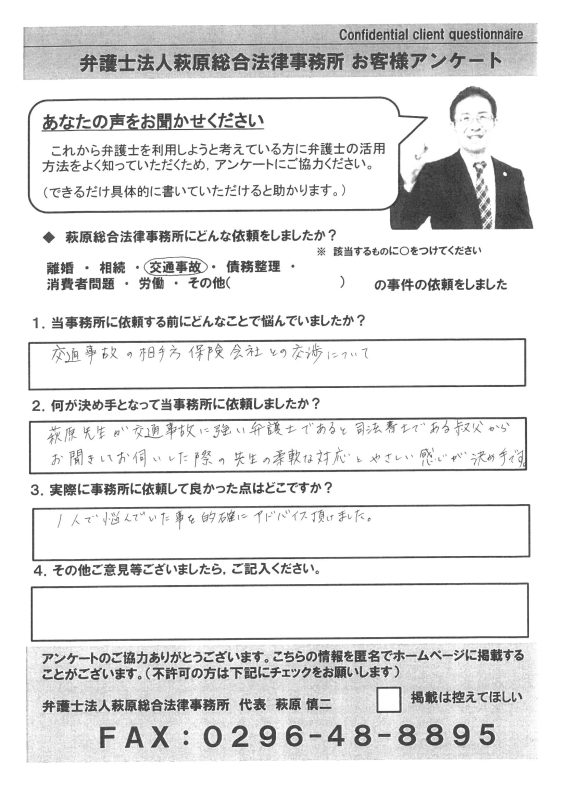 Confidential client questionnaire
弁護士法人萩原総合法律事務所 お客様アンケート
あなたの声をお聞かせください
これから弁護士を利用しようと考えている方に弁護士の活用
方法をよく知っていただくため，アンケートにご協力ください。
（できるだけ具体的に書いていただけると助かります。）
◆ 萩原総合法律事務所にどんな依頼をしましたか？
※ 該当するものに○をつけてください
離婚 ・ 相続 ・ 交通事故 ・ 債務整理 ・
消費者問題 ・ 労働 ・ その他（ ） の事件の依頼をしました
１．当事務所に依頼する前にどんなことで悩んでいましたか？
交通事故の相手方保険会社との交渉について
２．何が決め手となって当事務所に依頼しましたか？
萩原先生が交通事故に強い弁護士であると司法書士である叔父から
お聞きしてお伺いした際の先生の柔軟な対応とやさしい感じが決め手です。
３．実際に事務所に依頼して良かった点はどこですか？
１人で悩んでいた事を的確にアドバイス頂けました。
４．その他ご意見等ございましたら，ご記入ください。
アンケートのご協力ありがとうございます。こちらの情報を匿名でホームページに掲載する
ことがございます。（不許可の方は下記にチェックをお願いします）
弁護士法人萩原総合法律事務所 代表 萩原 慎二
掲載は控えてほしい
ＦＡＸ：０２９６－４８－８８９５